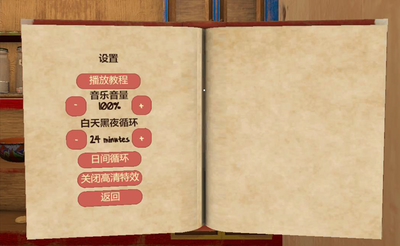 设置
播放教程
音乐音量
- 100% +
白天黑夜循环
- 24 minutes +
日间循环
关闭高清特效
返回